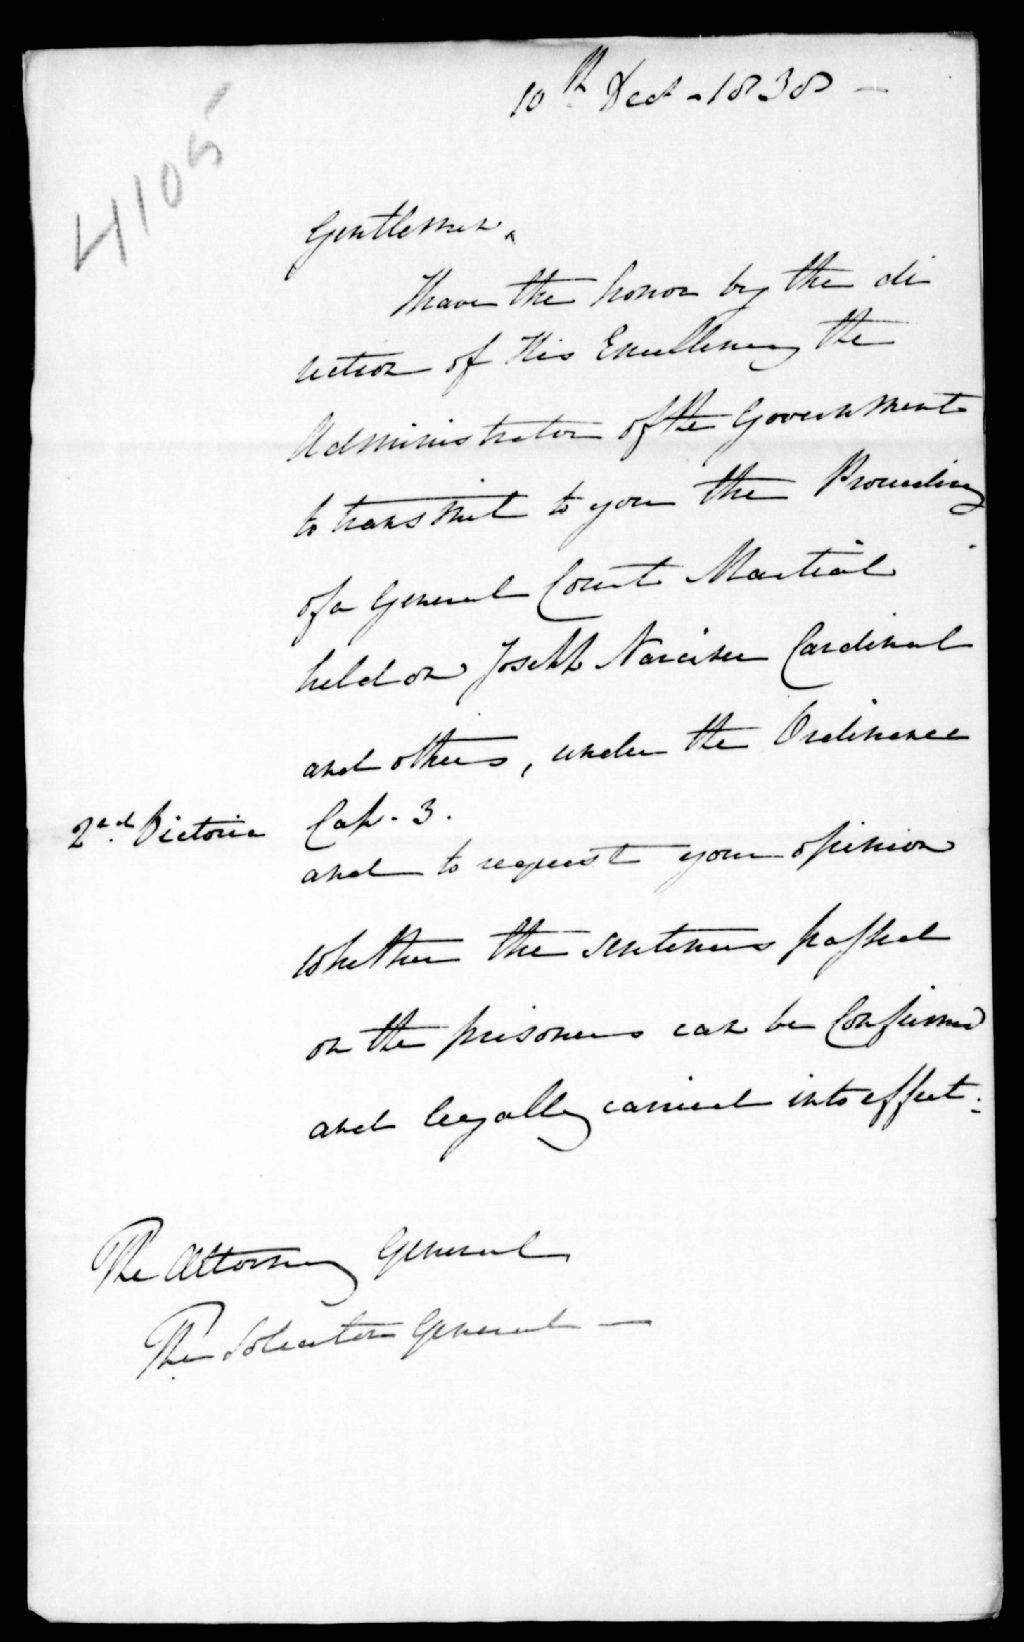 10th Dect - 1838 -
4105
Gentlemen.
I have the honor by the di
rection of His Excellency the
Administrator of the Government
to transmit to you the Proceedings
of a General Court Martial
held on Joseph Narcisse Cardinal
and others, under the Ordinance
2nd. Victoria Cap. 3.
and to request your opinion
whether the sentences passed
on the prisoners can be Confirmed
and legally carried into effect.
The Attorney General
The Solicitor General -